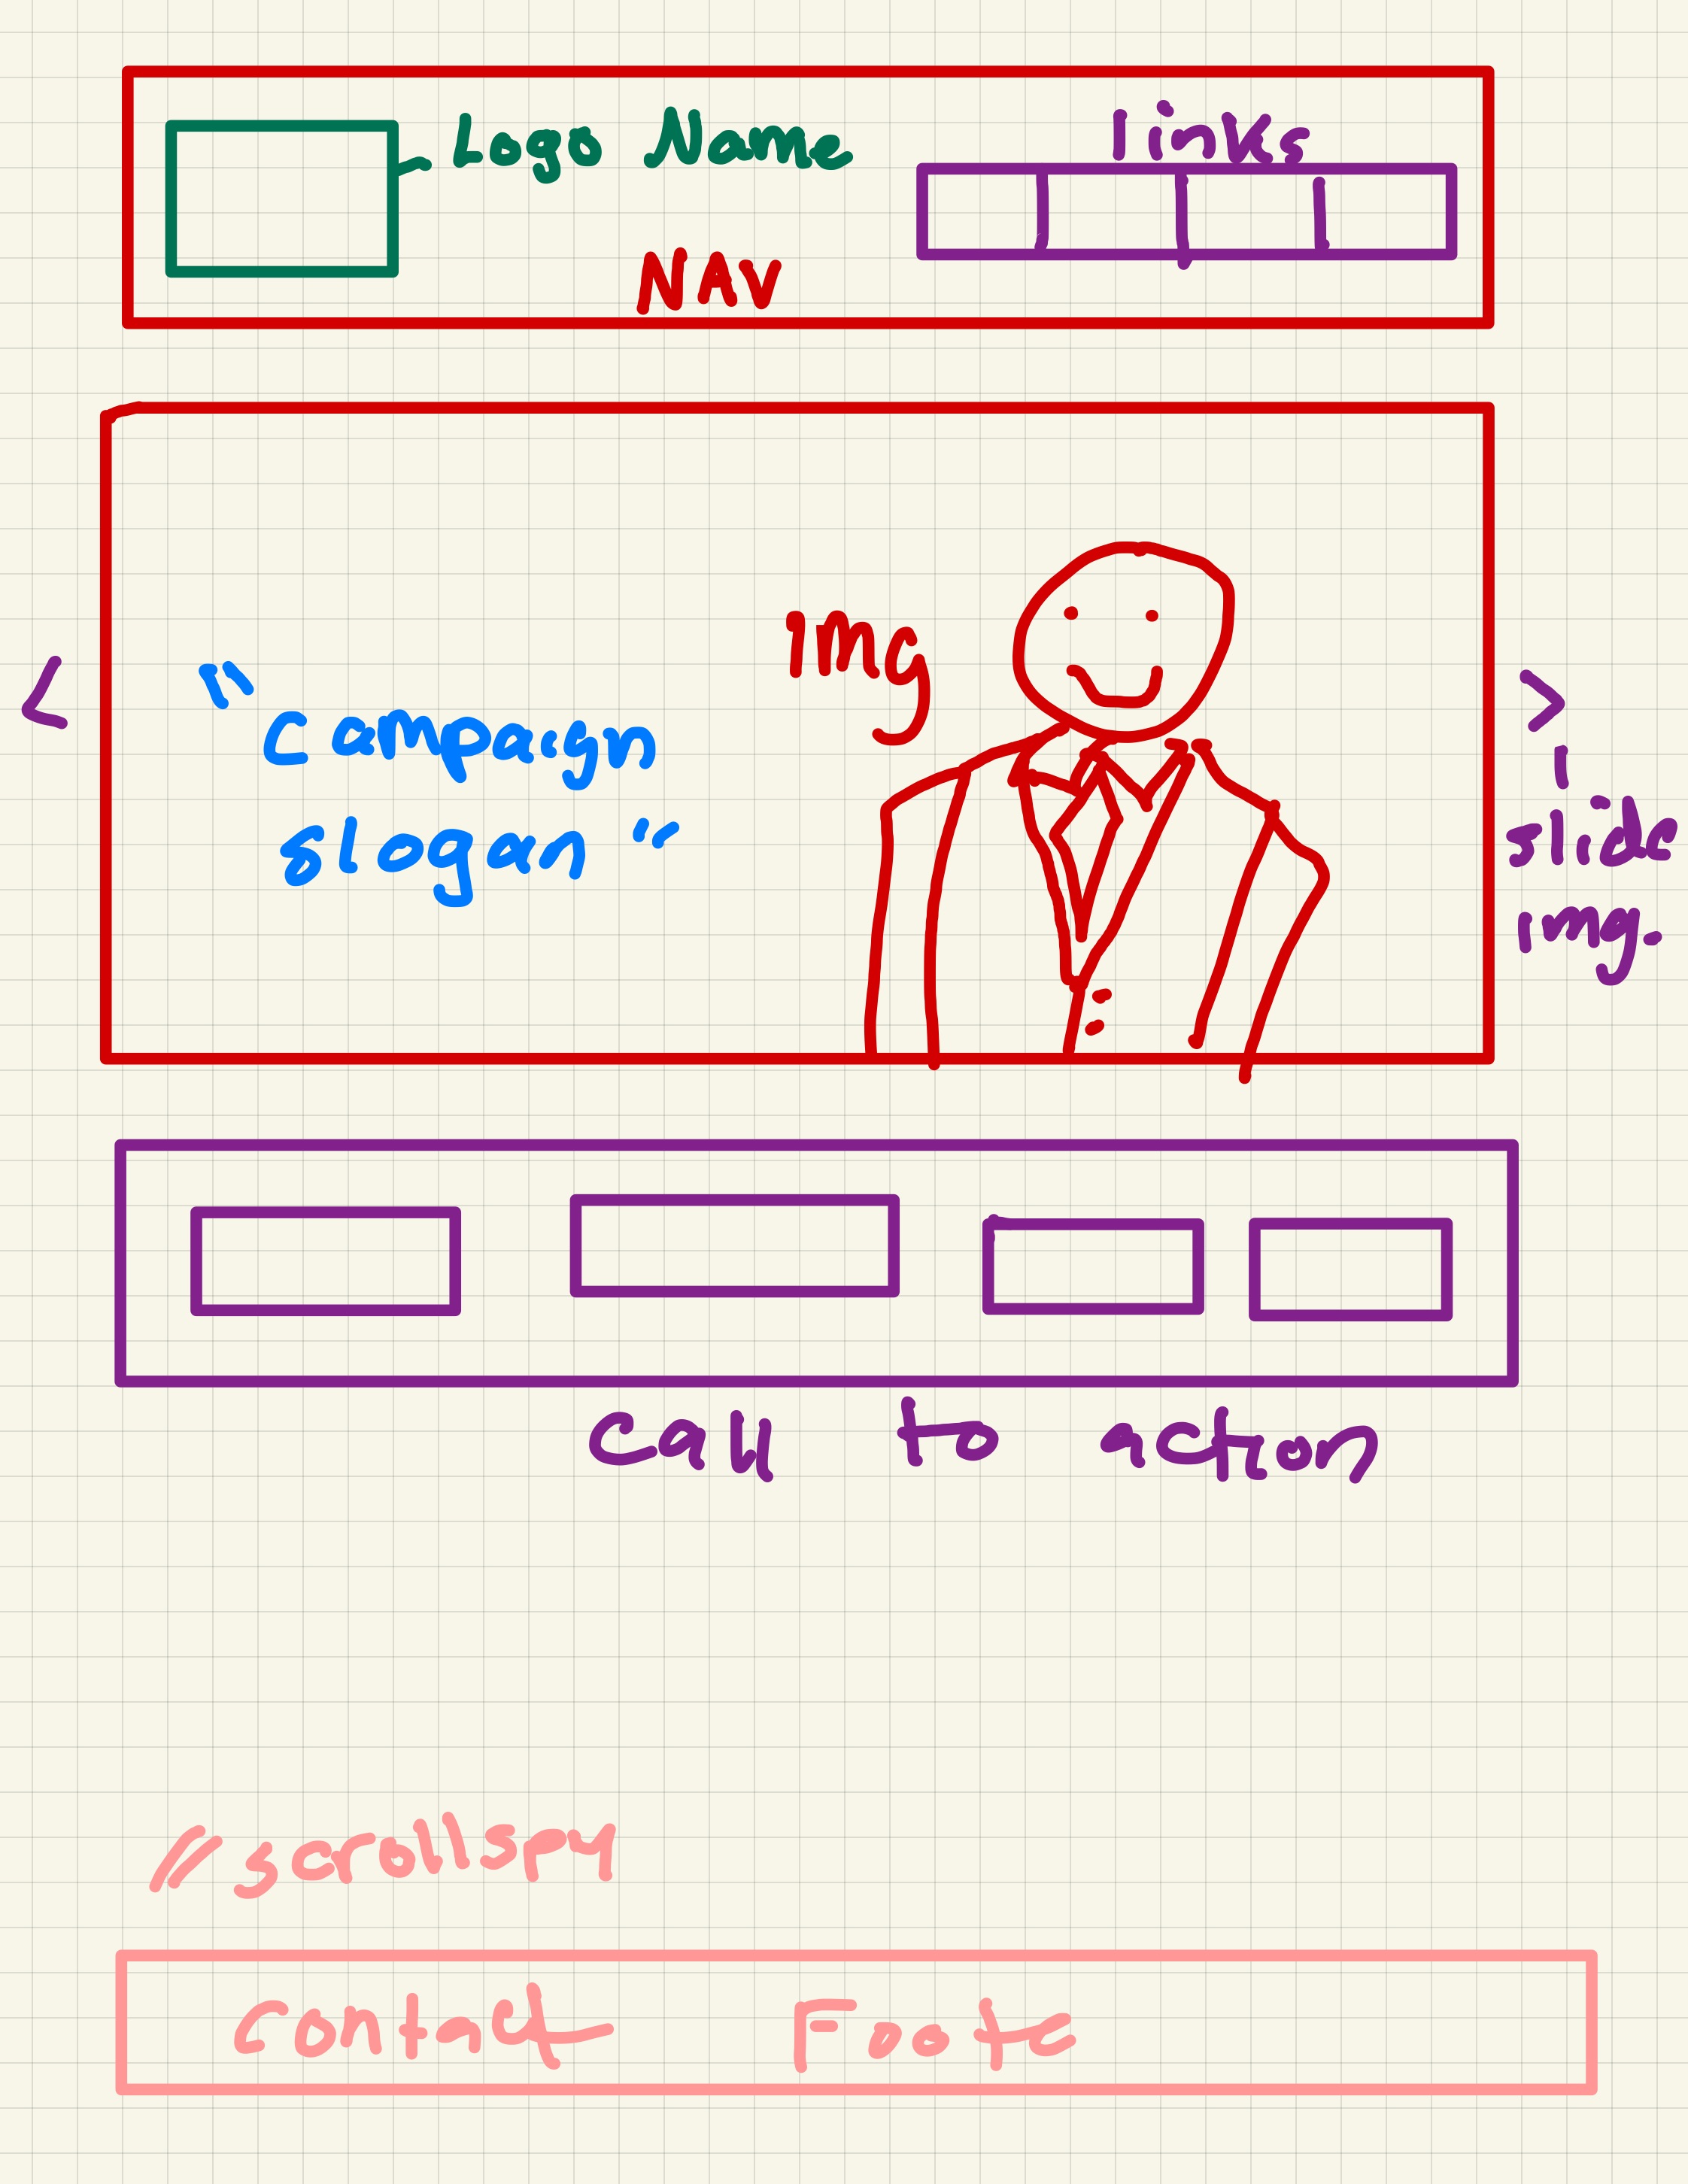 Logo Name
links
NAV
img
"campaign
slogan"
<
>
slide
img.
call to action
//scrollspy
contact Foote